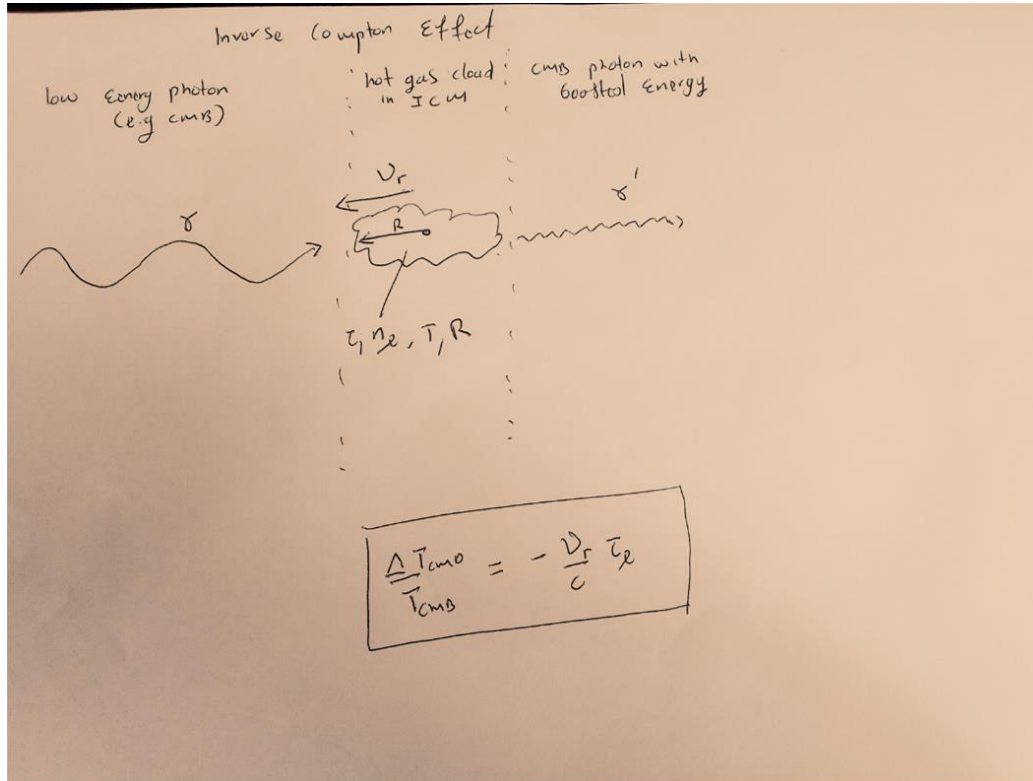 Inverse Compton Effect
low Eenery photon
(e.g CMB)
hot gas cloud
in ICM
CMB photon with
boosted Energy
γ
υr
R
γ'
τ, ne, T, R
ΔTCMB / TCMB = - υr / c τe